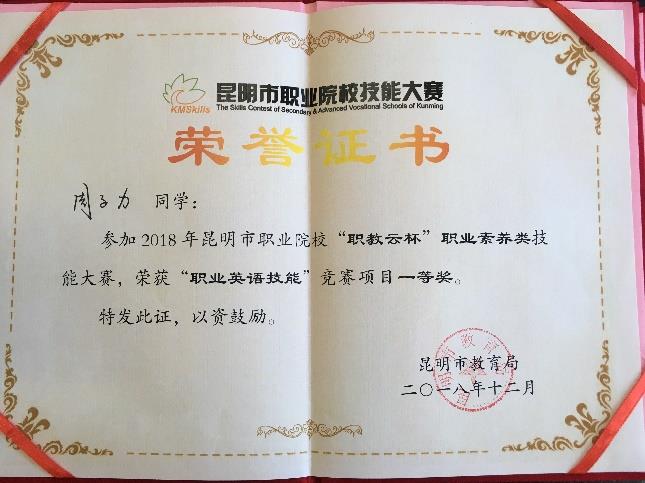 KMSkills
昆明市职业院校技能大赛
The Skills Contest of Secondary & Advanced Vocational Schools of Kunming
荣誉证书
周子力 同学：
参加2018年昆明市职业院校“职教云杯”职业素养类技
能大赛，荣获“职业英语技能”竞赛项目一等奖。
特发此证，以资鼓励。
昆明市教育局
二〇一八年十二月
昆明市教育局